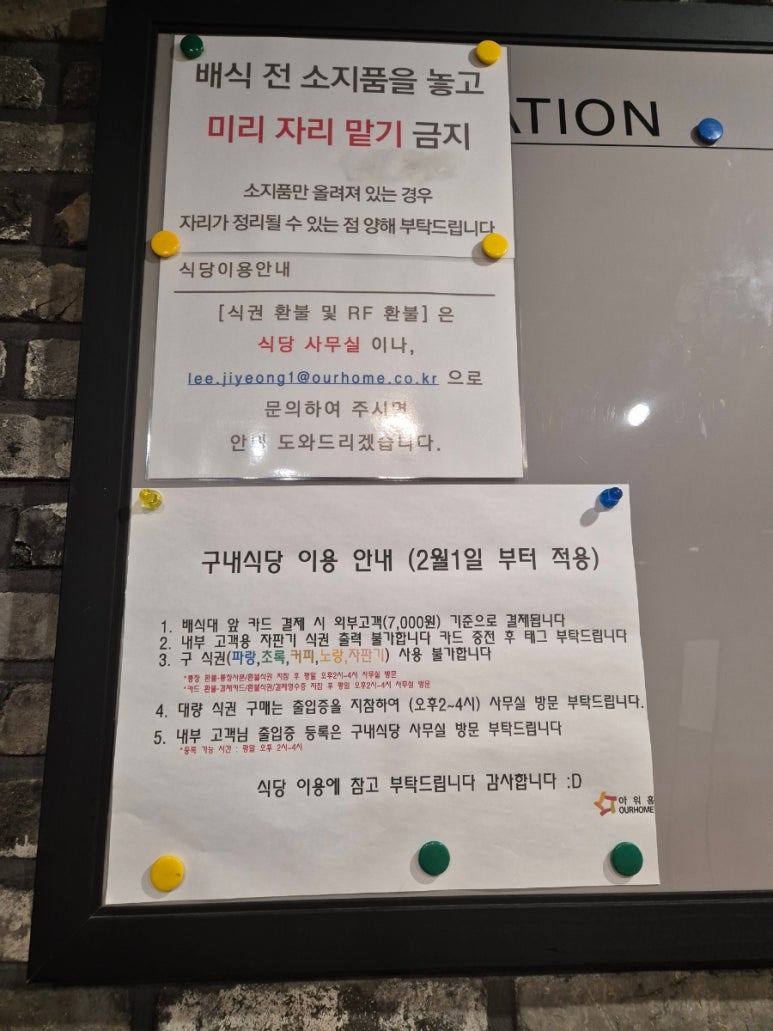 배식 전 소지품을 놓고
미리 자리 맡기 금지
소지품만 올려져 있는 경우
자리가 정리될 수 있는 점 양해 부탁드립니다
ATION
식당이용안내
[식권 환불 및 RF 환불] 은
식당 사무실 이나,
lee.jiyeong1@ourhome.co.kr 으로
문의하여 주시면
안내 도와드리겠습니다.
구내식당 이용 안내 (2월1일 부터 적용)
1. 배식대 앞 카드 결제 시 외부고객(7,000원) 기준으로 결제됩니다
2. 내부 고객용 자판기 식권 출력 불가합니다 카드 충전 후 태그 부탁드립니다
3. 구 식권(파랑,초록,커피,노랑,자판기) 사용 불가합니다
*통장 환불-통장사본/환불식권 지참 후 평일 오후2시-4시 사무실 방문
*카드 환불-결제카드/환불식권/결제영수증 지참 후 평일 오후2시-4시 사무실 방문
4. 대량 식권 구매는 출입증을 지참하여 (오후2~4시) 사무실 방문 부탁드립니다.
5. 내부 고객님 출입증 등록은 구내식당 사무실 방문 부탁드립니다
*등록 가능 시간 : 평일 오후 2시-4시
식당 이용에 참고 부탁드립니다 감사합니다 :D
아워홈
OURHOME